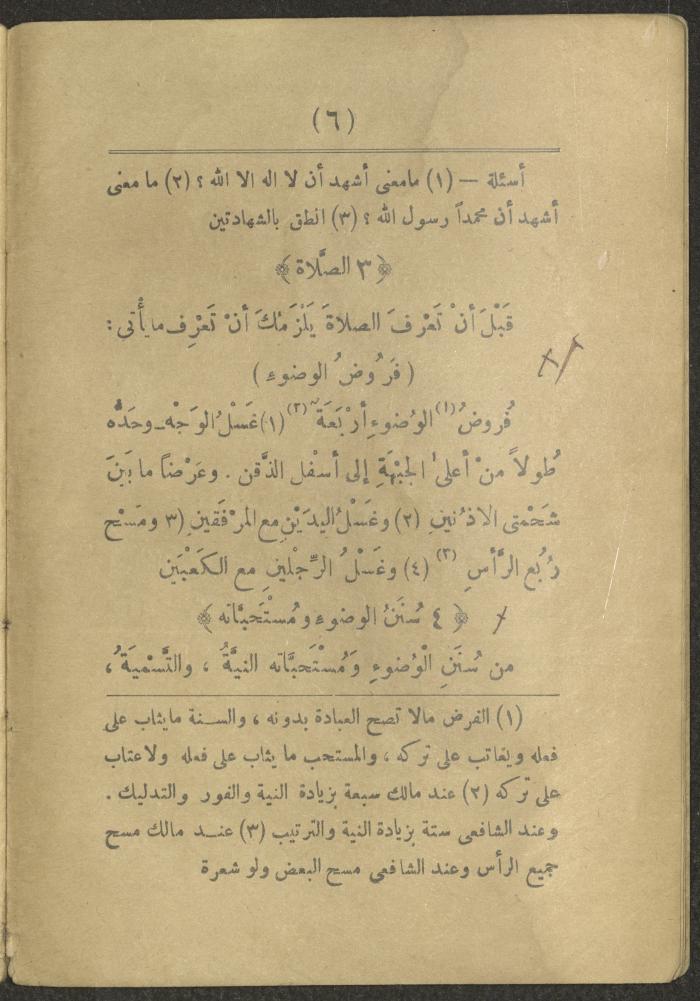 (٦)
أسئلة — (١) مامعنى أشهد أن لا اله الا الله ؟ (٢) ما معنى
أشهد أن محمداً رسول الله ؟ (٣) انطق بالشهادتين
﴿ ٣ الصَّلاة ﴾
قَبْلَ أنْ تَعْرِفَ الصلاةَ يَلْزَمُكَ أنْ تَعْرِف ما يأْتى :
( فَرُوضُ الوضوءِ )
فُروضُ (١) الوُضوءِ أرْبَعَةٌ (٢) (١) غَسْلُ الوَجْه وحَدُّه
طُولاً منْ أعلىٰ الجبْهَةِ إلى أسْفل الذَّقن . وعَرْضاً ما بَيْنَ
شَحْمتى الاذُنينِ (٢) وغَسْلُ اليدَيْنِ مع المرْفَقينِ (٣ ومَسْح
رُبُع الرَّأسِ (٣) (٤) وغَسْلُ الرِّجْلينِ مع الكَعْبَيْنِ
﴿ ٤ سُنَنُ الوضوءِ ومُسْتَحَبَّاته ﴾
من سُنَنِ الْوُضوءِ وَمُسْتَحَبَّاته النيَّةُ ، والتَّسْمِيَةُ ،
(١) الفرض مالا تصح العبادة بدونه ، والسنة مايثاب على
فعله ويعاتب على تركه ، والمستحب ما يثاب على فعله ولا عتاب
على تركه (٢) عند مالك سبعة بزيادة النية والفور والتدليك .
وعند الشافعى ستة بزيادة النية والترتيب (٣) عند مالك مسح
جميع الرأس وعند الشافعى مسح البعض ولو شعرة